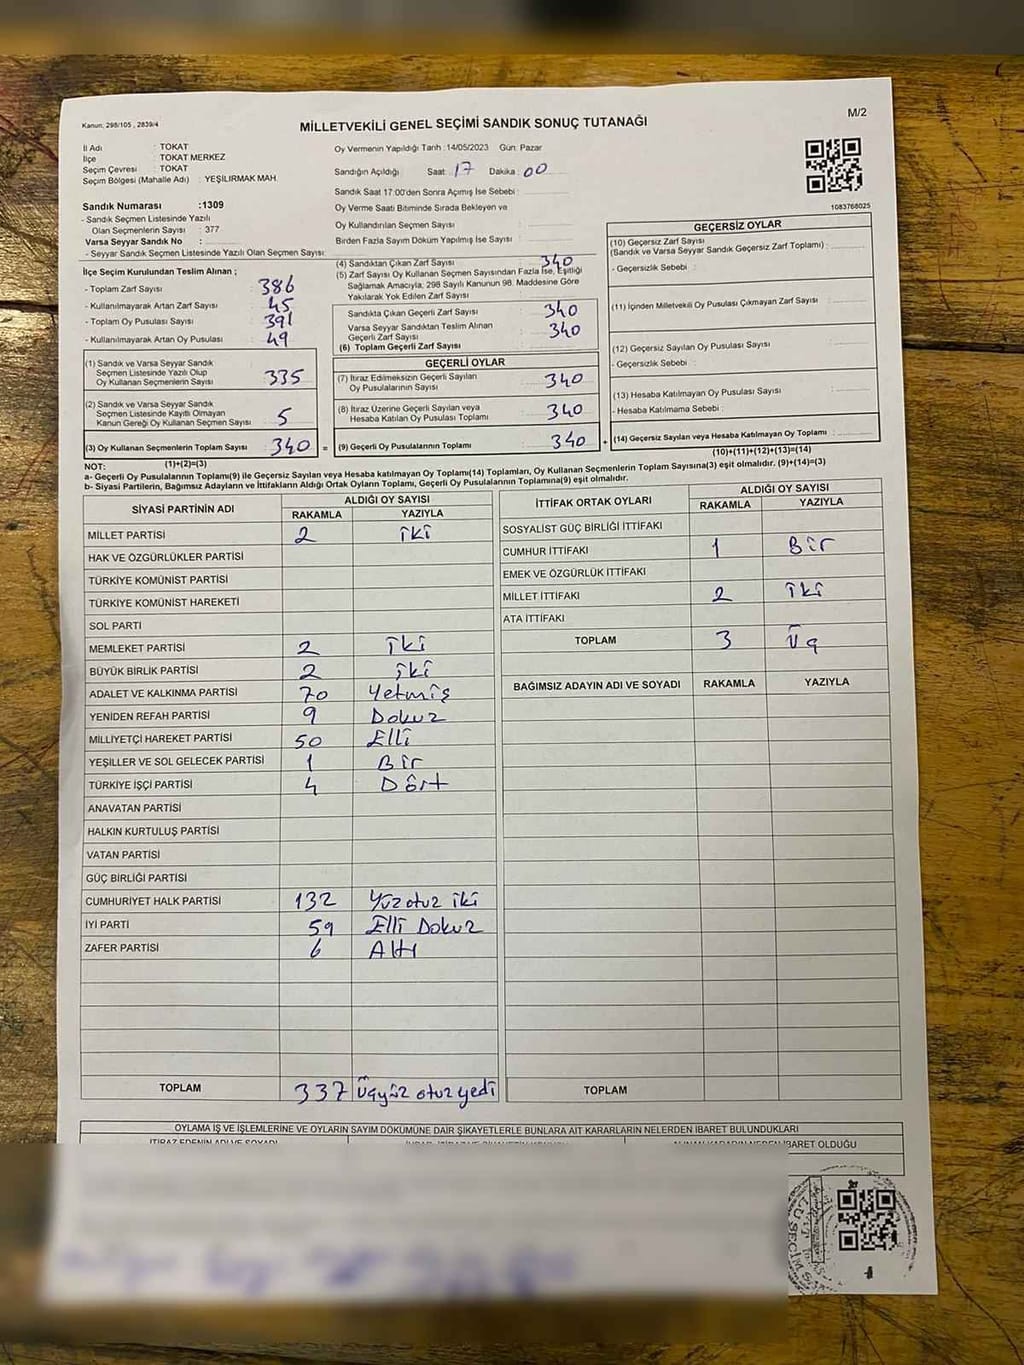 Kanun, 298/105 , 2839/4
M/2
MİLLETVEKİLİ GENEL SEÇİMİ SANDIK SONUÇ TUTANAĞI
İl Adı : TOKAT
İlçe : TOKAT MERKEZ
Seçim Çevresi : TOKAT
Seçim Bölgesi (Mahalle Adı) : YEŞİLIRMAK MAH.
Sandık Numarası :1309
- Sandık Seçmen Listesinde Yazılı
Olan Seçmenlerin Sayısı : 377
Varsa Seyyar Sandık No :
- Seyyar Sandık Seçmen Listesinde Yazılı Olan Seçmen Sayısı:
Oy Vermenin Yapıldığı Tarih :14/05/2023 Gün: Pazar
Sandığın Açıldığı Saat : 17 Dakika : 00
Sandık Saat 17:00'den Sonra Açılmış İse Sebebi :
Oy Verme Saati Bitiminde Sırada Bekleyen ve
Oy Kullandırılan Seçmen Sayısı :
Birden Fazla Sayım Döküm Yapılmış İse Sayısı :
1083768025
İlçe Seçim Kurulundan Teslim Alınan ;
- Toplam Zarf Sayısı : 386
- Kullanılmayarak Artan Zarf Sayısı : 45
- Toplam Oy Pusulası Sayısı : 391
- Kullanılmayarak Artan Oy Pusulası : 49
(1) Sandık ve Varsa Seyyar Sandık
Seçmen Listesinde Yazılı Olup
Oy Kullanan Seçmenlerin Sayısı : 335
(2) Sandık ve Varsa Seyyar Sandık
Seçmen Listesinde Kayıtlı Olmayan
Kanun Gereği Oy Kullanan Seçmen Sayısı : 5
(3) Oy Kullanan Seçmenlerin Toplam Sayısı : 340 =
(1)+(2)=(3)
(4) Sandıktan Çıkan Zarf Sayısı : 340
(5) Zarf Sayısı Oy Kullanan Seçmen Sayısından Fazla İse, Eşitliği
Sağlamak Amacıyla, 298 Sayılı Kanunun 98. Maddesine Göre
Yakılarak Yok Edilen Zarf Sayısı :
Sandıkta Çıkan Geçerli Zarf Sayısı : 340
Varsa Seyyar Sandıktan Teslim Alınan
Geçerli Zarf Sayısı : 340
(6) Toplam Geçerli Zarf Sayısı :
GEÇERLİ OYLAR
(7) İtiraz Edilmeksizin Geçerli Sayılan
Oy Pusulalarının Sayısı : 340
(8) İtiraz Üzerine Geçerli Sayılan veya
Hesaba Katılan Oy Pusulası Toplamı : 340
(9) Geçerli Oy Pusulalarının Toplamı : 340 +
GEÇERSİZ OYLAR
(10) Geçersiz Zarf Sayısı
(Sandık ve Varsa Seyyar Sandık Geçersiz Zarf Toplamı) :
- Geçersizlik Sebebi :
(11) İçinden Milletvekili Oy Pusulası Çıkmayan Zarf Sayısı :
(12) Geçersiz Sayılan Oy Pusulası Sayısı :
- Geçersizlik Sebebi :
(13) Hesaba Katılmayan Oy Pusulası Sayısı :
- Hesaba Katılmama Sebebi :
(14) Geçersiz Sayılan veya Hesaba Katılmayan Oy Toplamı :
(10)+(11)+(12)+(13)=(14)
NOT:
a- Geçerli Oy Pusulalarının Toplamı(9) ile Geçersiz Sayılan veya Hesaba katılmayan Oy Toplamı(14) Toplamları, Oy Kullanan Seçmenlerin Toplam Sayısına(3) eşit olmalıdır. (9)+(14)=(3)
b- Siyasi Partilerin, Bağımsız Adayların ve İttifakların Aldığı Ortak Oyların Toplamı, Geçerli Oy Pusulalarının Toplamına(9) eşit olmalıdır.
SİYASİ PARTİNİN ADI ALDIĞI OY SAYISI
RAKAMLA YAZIYLA
MİLLET PARTİSİ 2 iki
HAK VE ÖZGÜRLÜKLER PARTİSİ
TÜRKİYE KOMÜNİST PARTİSİ
TÜRKİYE KOMÜNİST HAREKETİ
SOL PARTİ
MEMLEKET PARTİSİ 2 iki
BÜYÜK BİRLİK PARTİSİ 2 iki
ADALET VE KALKINMA PARTİSİ 70 Yetmiş
YENİDEN REFAH PARTİSİ 9 Dokuz
MİLLİYETÇİ HAREKET PARTİSİ 50 Elli
YEŞİLLER VE SOL GELECEK PARTİSİ 1 Bir
TÜRKİYE İŞÇİ PARTİSİ 4 Dört
ANAVATAN PARTİSİ
HALKIN KURTULUŞ PARTİSİ
VATAN PARTİSİ
GÜÇ BİRLİĞİ PARTİSİ
CUMHURİYET HALK PARTİSİ 132 Yüz otuz iki
İYİ PARTİ 59 Elli Dokuz
ZAFER PARTİSİ 6 Altı
TOPLAM 337 Üçyüz otuz yedi
İTTİFAK ORTAK OYLARI ALDIĞI OY SAYISI
RAKAMLA YAZIYLA
SOSYALİST GÜÇ BİRLİĞİ İTTİFAKI
CUMHUR İTTİFAKI 1 Bir
EMEK VE ÖZGÜRLÜK İTTİFAKI
MİLLET İTTİFAKI 2 iki
ATA İTTİFAKI
TOPLAM 3 Üç
BAĞIMSIZ ADAYIN ADI VE SOYADI RAKAMLA YAZIYLA
TOPLAM
OYLAMA İŞ VE İŞLEMLERİNE VE OYLARIN SAYIM DÖKÜMÜNE DAİR ŞİKAYETLERLE BUNLARA AİT KARARLARIN NELERDEN İBARET BULUNDUKLARI
İTİRAZ EDENİN ADI VE SOYADI
İBARET OLDUĞU